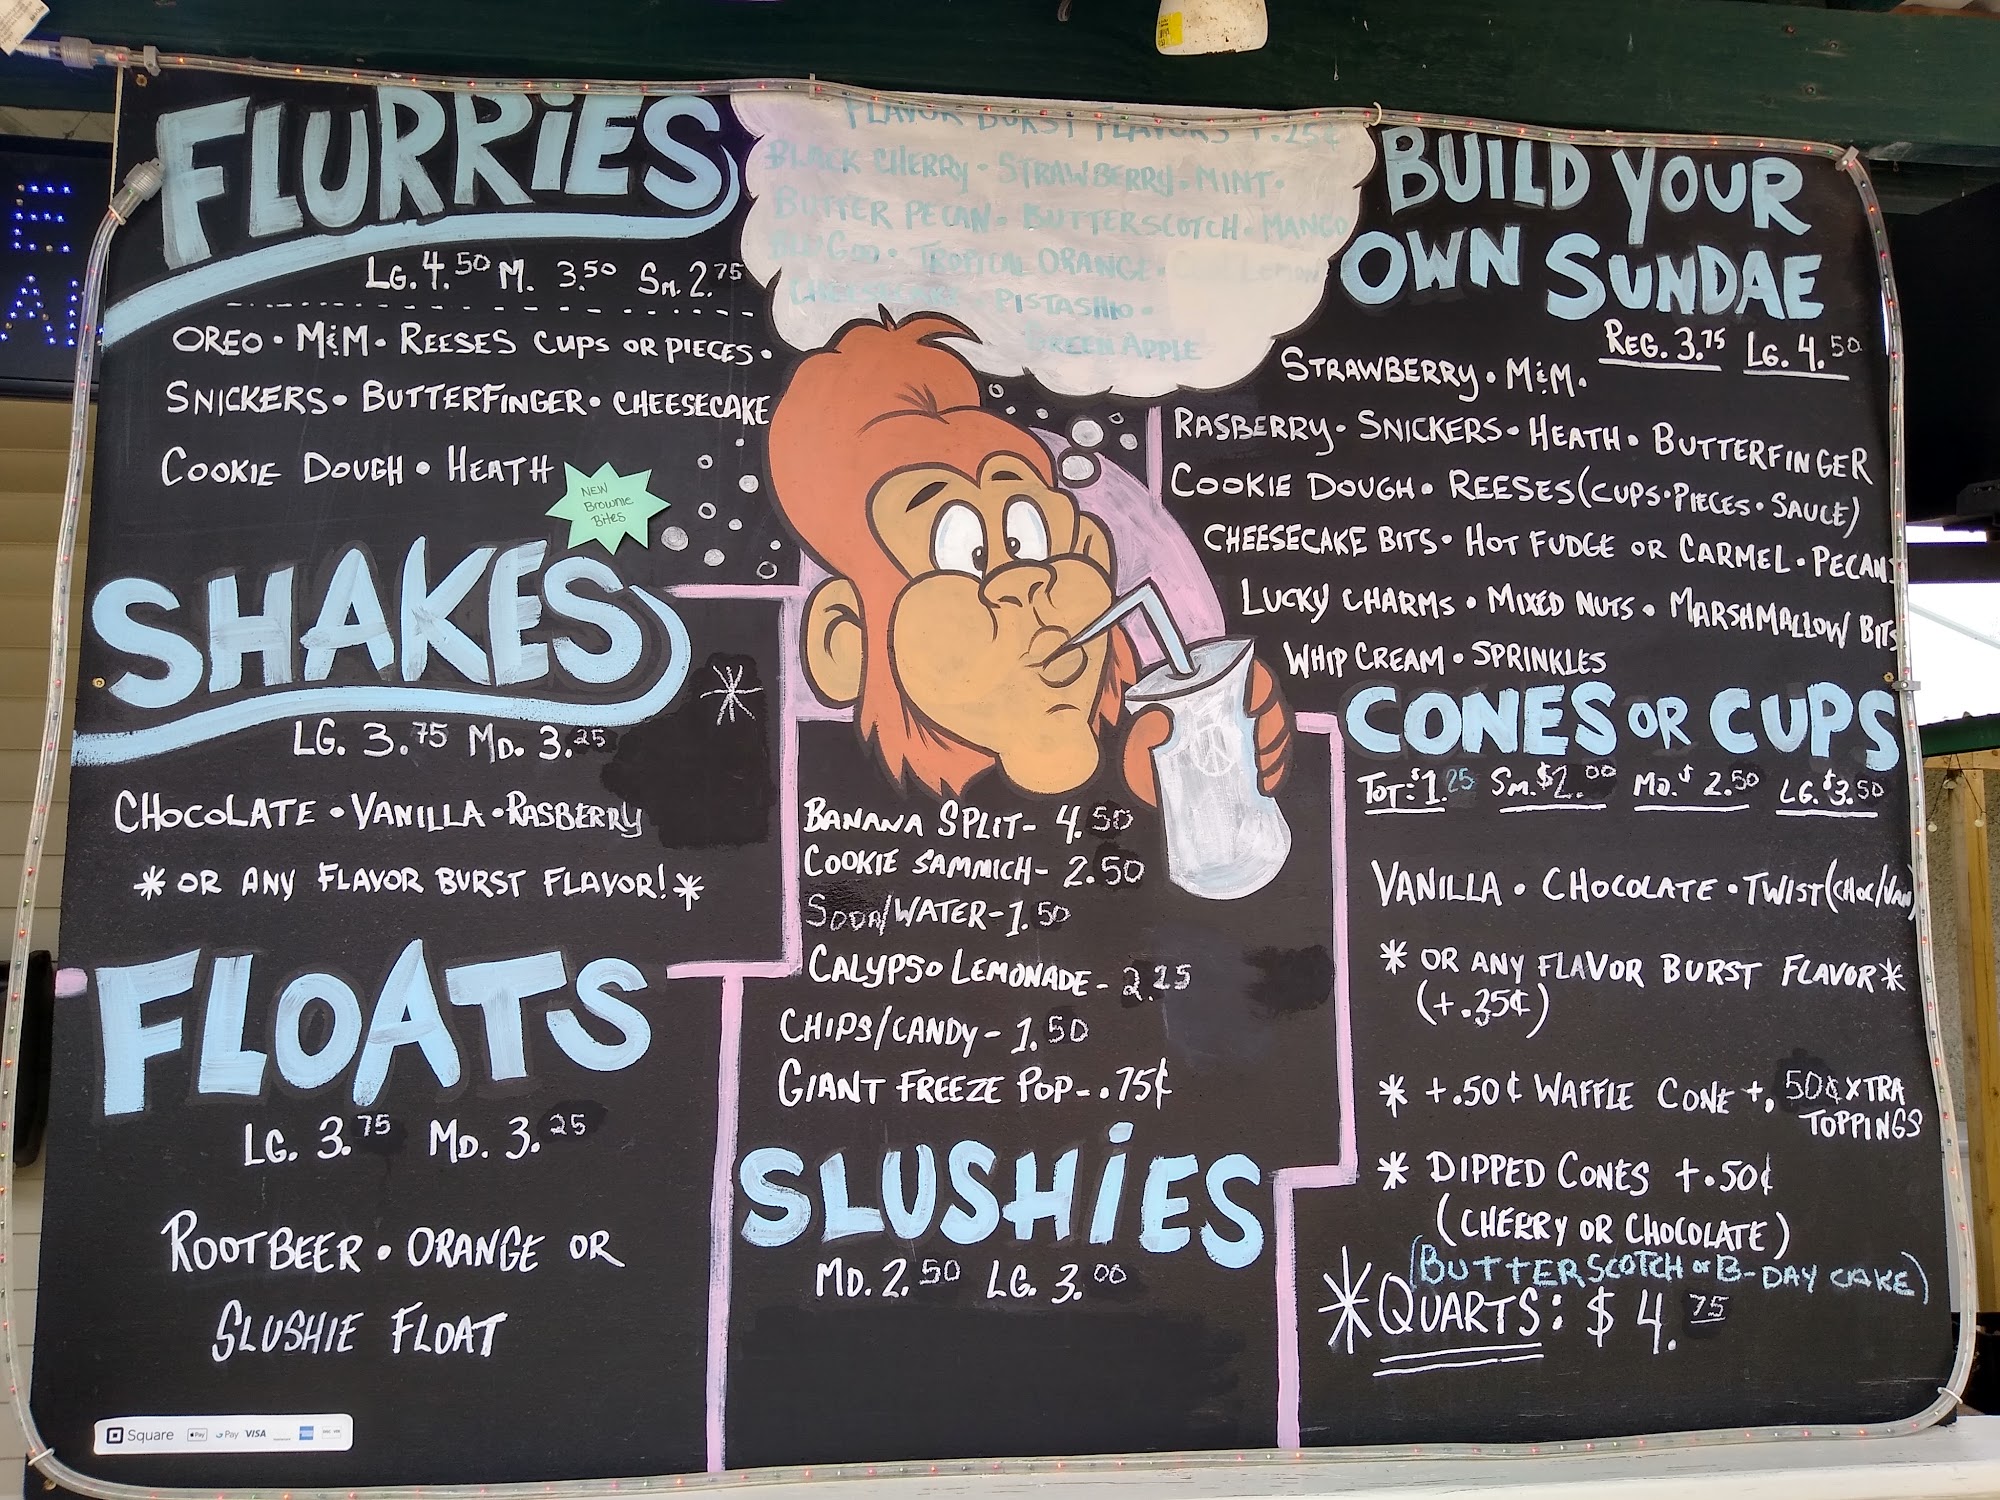 FLURRIES
LG. 4.50 M. 3.50 SM. 2.75
OREO • M&M • REESES CUPS OR PIECES •
SNICKERS • BUTTERFINGER • CHEESECAKE
COOKIE DOUGH • HEATH
NEW
Brownie
Bites
SHAKES
LG. 3.75 MD. 3.25
CHOCOLATE • VANILLA • RASBERRY
* OR ANY FLAVOR BURST FLAVOR! *
FLOATS
LG. 3.75 MD. 3.25
ROOTBEER • ORANGE OR
SLUSHIE FLOAT
Square Pay G Pay VISA
FLAVOR BURST FLAVORS +.25¢
BLACK CHERRY • STRAWBERRY • MINT •
BUTTER PECAN • BUTTERSCOTCH • MANGO
BLU GOO • TROPICAL ORANGE • LEMON
PISTASHIO •
GREEN APPLE
BANANA SPLIT - 4.50
COOKIE SAMMICH - 2.50
SODA/WATER - 1.50
CALYPSO LEMONADE - 2.25
CHIPS/CANDY - 1.50
GIANT FREEZE POP - .75¢
SLUSHIES
MD. 2.50 LG. 3.00
BUILD YOUR
OWN SUNDAE
REG. 3.75 LG. 4.50
STRAWBERRY • M&M •
RASBERRY • SNICKERS • HEATH • BUTTERFINGER
COOKIE DOUGH • REESES (CUPS • PIECES • SAUCE)
CHEESECAKE BITS • HOT FUDGE OR CARMEL • PECANS
LUCKY CHARMS • MIXED NUTS • MARSHMALLOW BITS
WHIP CREAM • SPRINKLES
CONES OR CUPS
TOT: $1.25 SM. $2.00 MD. $2.50 LG. $3.50
VANILLA • CHOCOLATE • TWIST (CHOC/VAN)
* OR ANY FLAVOR BURST FLAVOR *
(+.35¢)
* +.50¢ WAFFLE CONE +.50¢ XTRA
TOPPINGS
* DIPPED CONES +.50¢
(CHERRY OR CHOCOLATE)
(BUTTERSCOTCH or B-DAY CAKE)
*QUARTS: $4.75